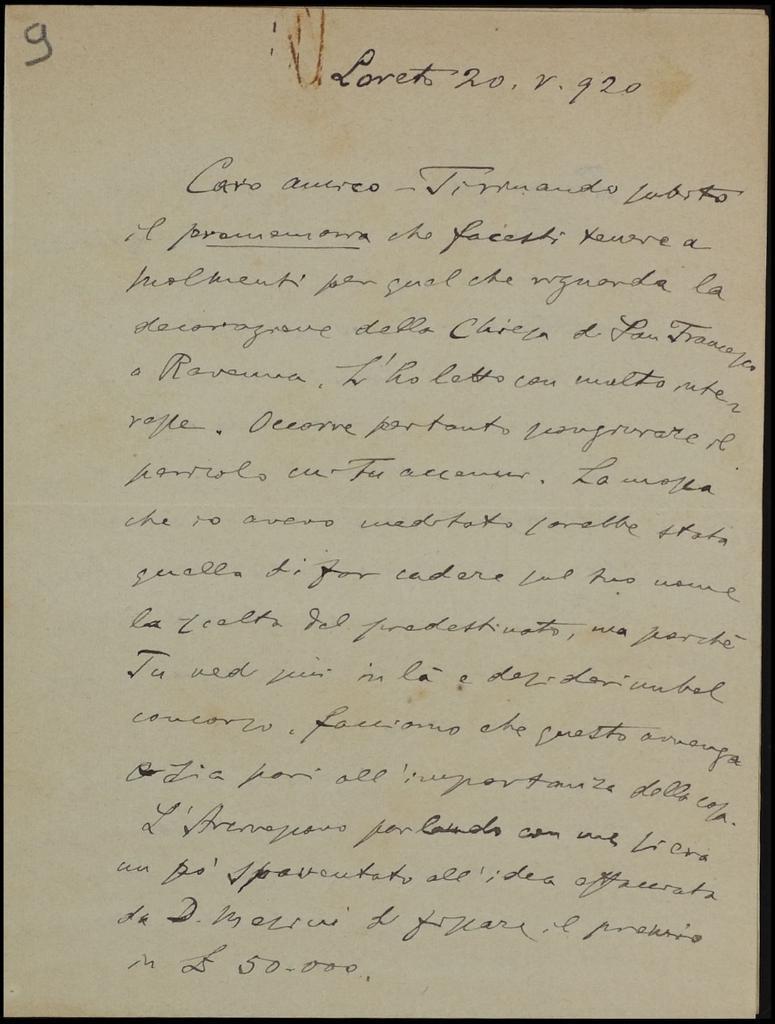 9
Loreto 20. V. 920
Caro amico – Ti rimando subito
il promemoria che facesti tenere a
Molmenti per quel che riguarda la
decorazione della Chiesa di San Francesco
a Ravenna. L'ho letto con molto inte
resse. Occorre pertanto scongiurare il
pericolo cui Tu accenni. La mossa
che io avevo meditato sarebbe stata
quella di far cadere sul tuo nome
la scelta del predestinato, ma perché
Tu vedi più in là e desideri un bel
concorso, facciamo che questo avvenga
e sia pari all'importanza della cosa.
L'Arcivescovo parlando con me si era
un pò spaventato all'idea affacciata
da D. Mesini di fissare il premio
in L 50.000.